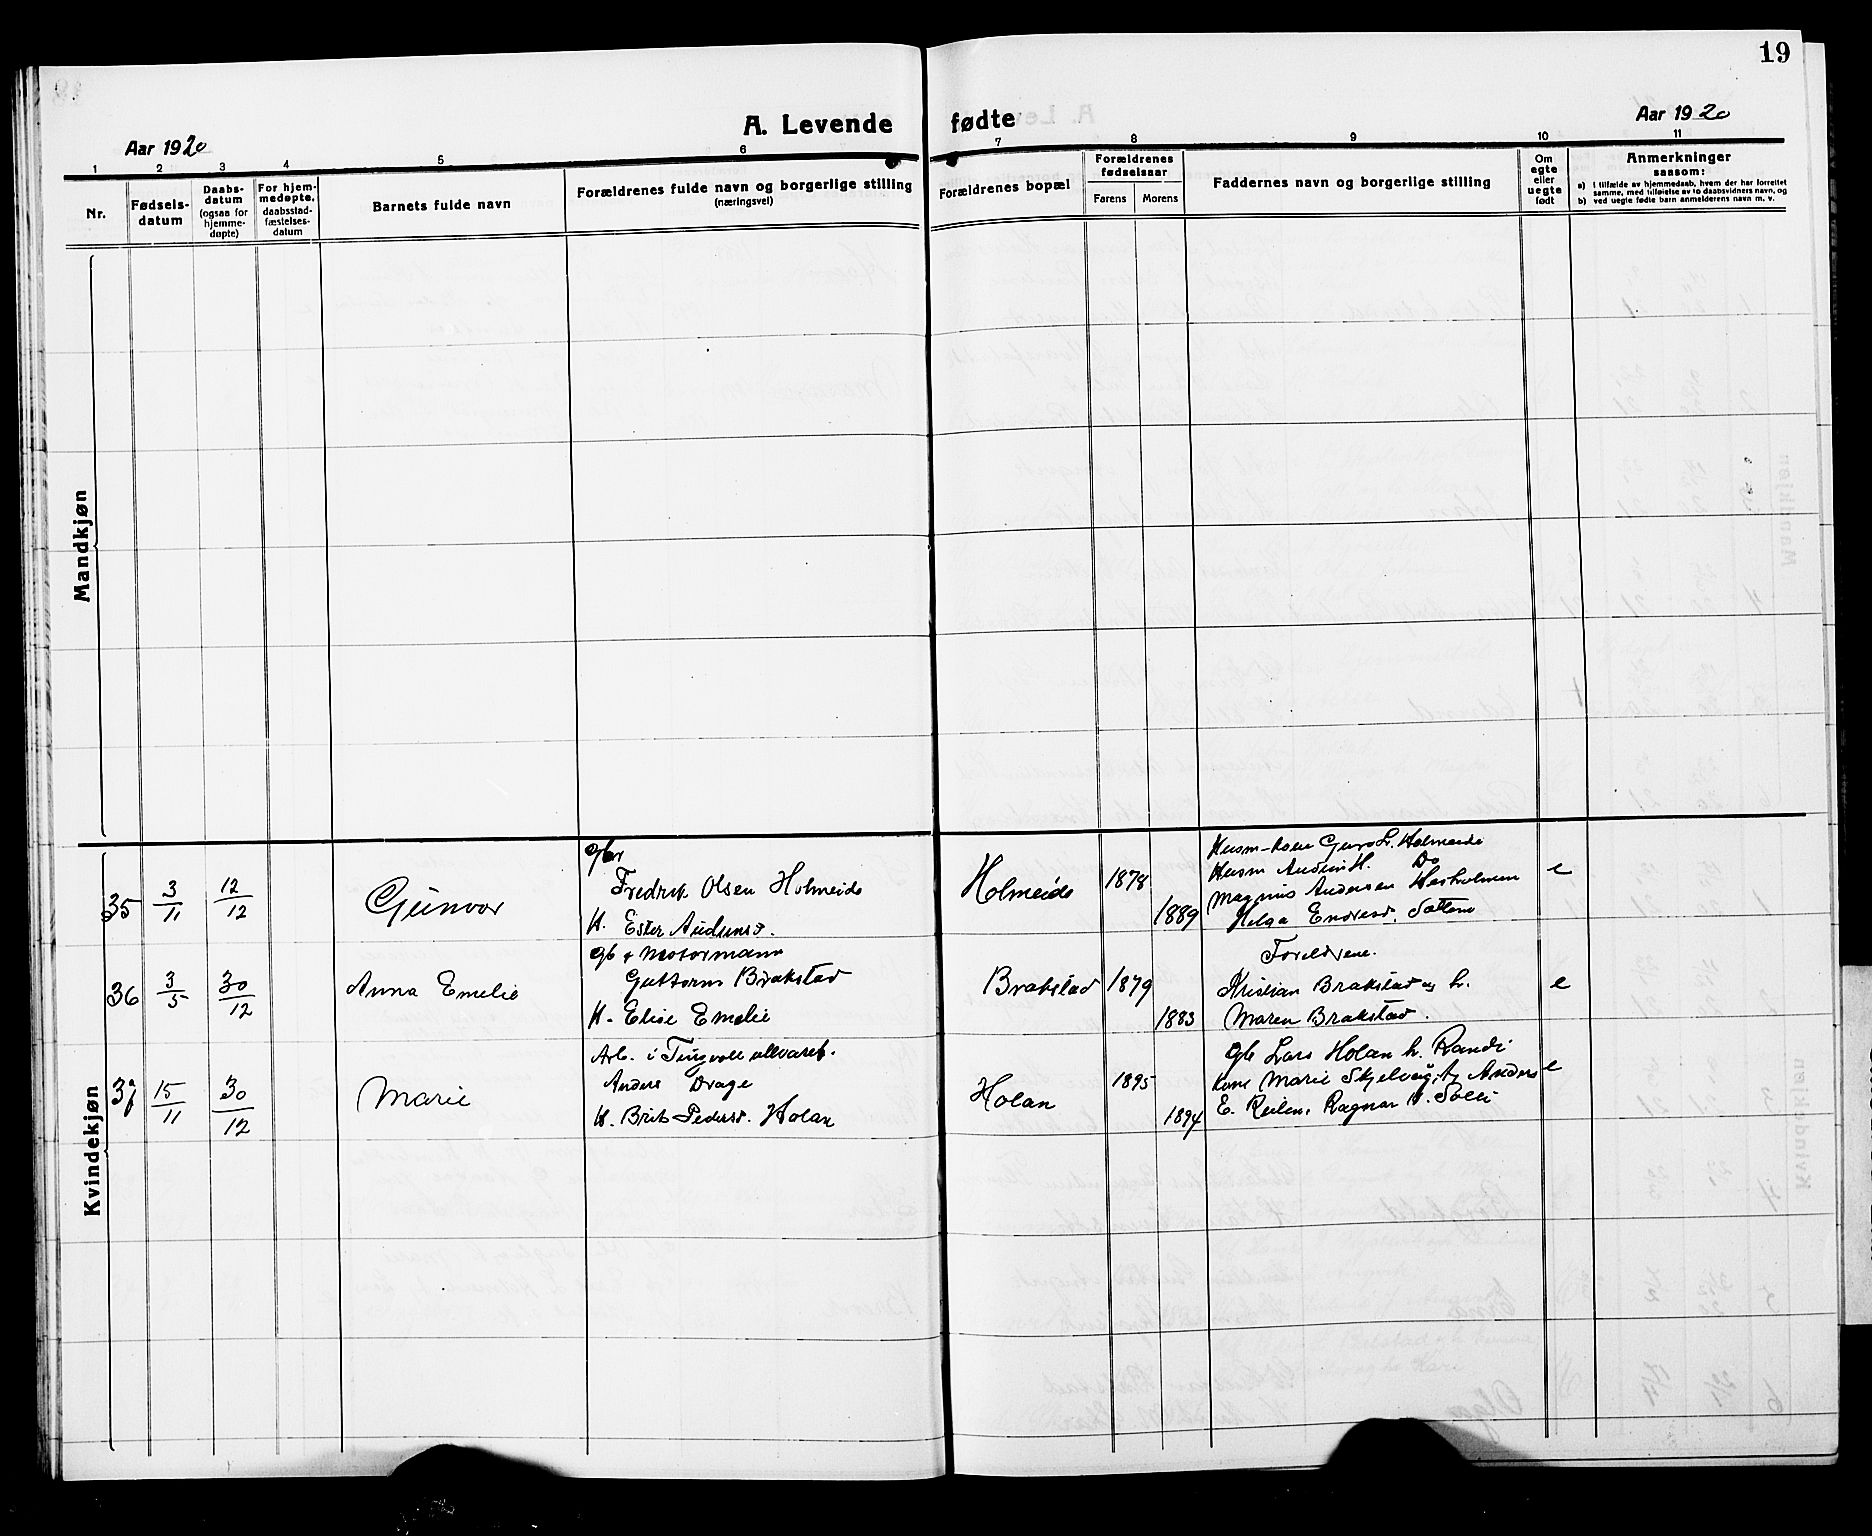 19
A. Levende fødte
Aar 1920
Aar 1920
1 2 3 4 5 6 7 8 9 10 11
Nr.
Fødsels-
datum
Daabs-
datum
(ogsaa for
hjemme-
døpte)
For hjem-
medøpte,
daabsstad-
fæstelses-
datum
Barnets fulde navn
Forældrenes fulde navn og borgerlige stilling
(næringsvei)
Forældrenes bopæl
Forældrenes
fødselsaar
Farens Morens
Faddernes navn og borgerlige stilling
Om
egte
eller
uegte
født
Anmerkninger
saasom:
a) i tilfælde av hjemmedaab, hvem der har forrettet
samme, med tilføielse av to daabsvidners navn, og
b) ved uegte fødte barn anmelderens navn m. v.
Mandkjøn
Kvindekjøn
35 3/11 12/12 Gunvor
gbr
Fredrik Olsen Holmeide
K. Ester Audunsd.
Holmeide 1878 1889
Husm-kone Guro L. Holmeide
Husm Audun H. Do
Magnus Andersen Hesholmen
Helga Endresd. Sættem
e
36 3/5 30/12 Anna Emelie
gb & Motormann
Guttorm Brakstad
K. Elise Emelie
Brakstad 1879 1883
Foreldrene.
Kristian Brakstad og h.
Maren Brakstad.
e
37 15/11 30/12 Marie
Arb. i Tingvoll ullvaref.
Anders Drage
K. Brit Pedersd. Holan
Holan 1895 1894
gb Lars Holan h. Randi
kone Marie Skjelvåg, Anders
E. Reilen, Ragnar Solli
e